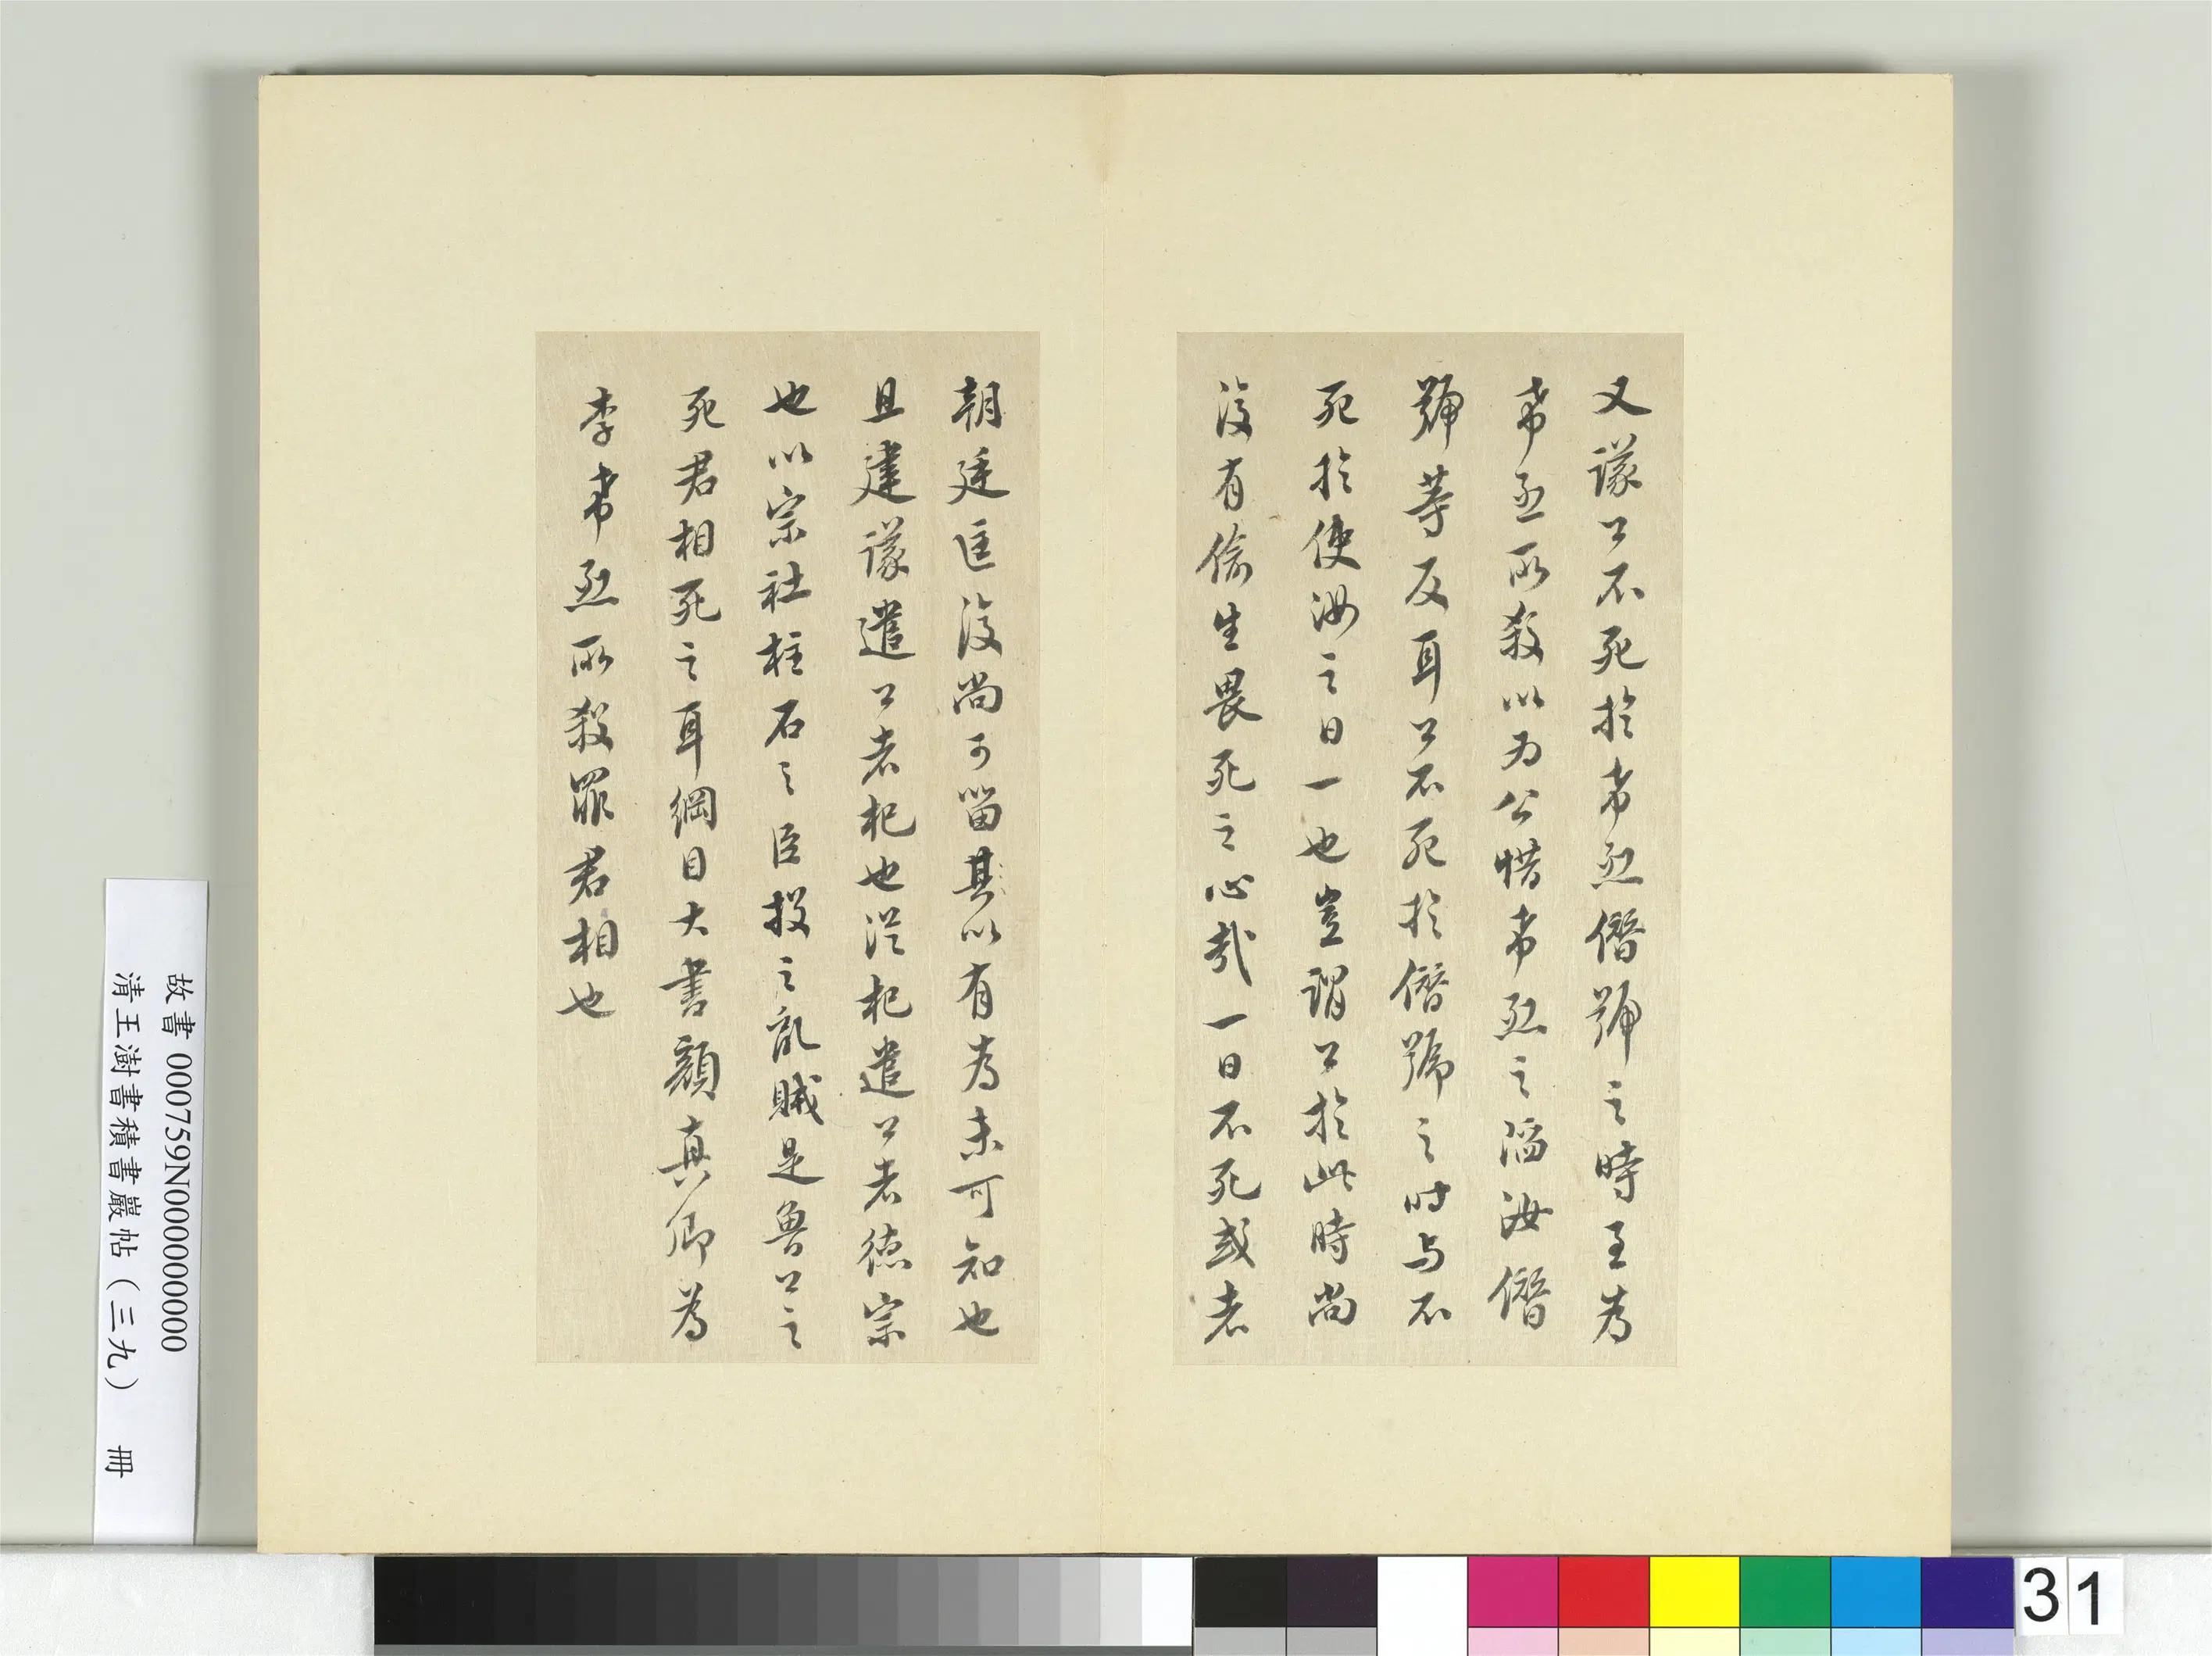 又議公不死於希烈僭號之時至為
希烈所殺以為公惜希烈之陷汝僭
號等反耳公不死於僭號之时与不
死於使汝之日一也豈謂公於此時尚
復有偷生畏死之心哉一日不死或者
朝廷匡復尚可留其以有為未可知也
且建議遣公者杞也從杞遣公者德宗
也以宗社柱石之臣投之亂賊是魯公之
死君相死之耳綱目大書顏真卿為
李希烈所殺罪君相也
故書 000759N000000000
清王澍書積書巖帖（三九） 冊
31